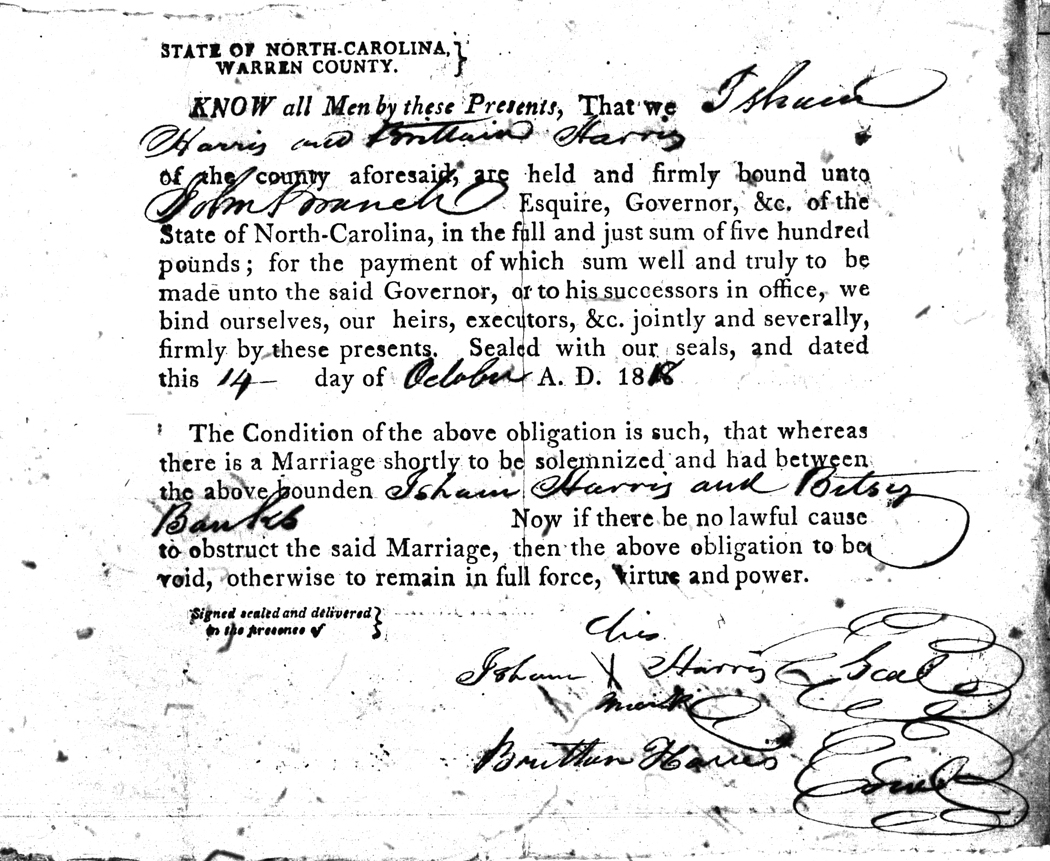 STATE OF NORTH-CAROLINA, }
WARREN COUNTY.
KNOW all Men by these Presents, That we Isham
Harris and Brittain Harris
of the county aforesaid, are held and firmly bound unto
John Branch Esquire, Governor, &c. of the
State of North-Carolina, in the full and just sum of five hundred
pounds; for the payment of which sum well and truly to be
made unto the said Governor, or to his successors in office, we
bind ourselves, our heirs, executors, &c. jointly and severally,
firmly by these presents. Sealed with our seals, and dated
this 14 — day of October A. D. 1818
The Condition of the above obligation is such, that whereas
there is a Marriage shortly to be solemnized and had between
the above bounden Isham Harris and Betsey
Banks Now if there be no lawful cause
to obstruct the said Marriage, then the above obligation to be
void, otherwise to remain in full force, virtue and power.
Signed sealed and delivered }
in the presence of
his
Isham X Harris Seal
mark
Brittan Harris Seal